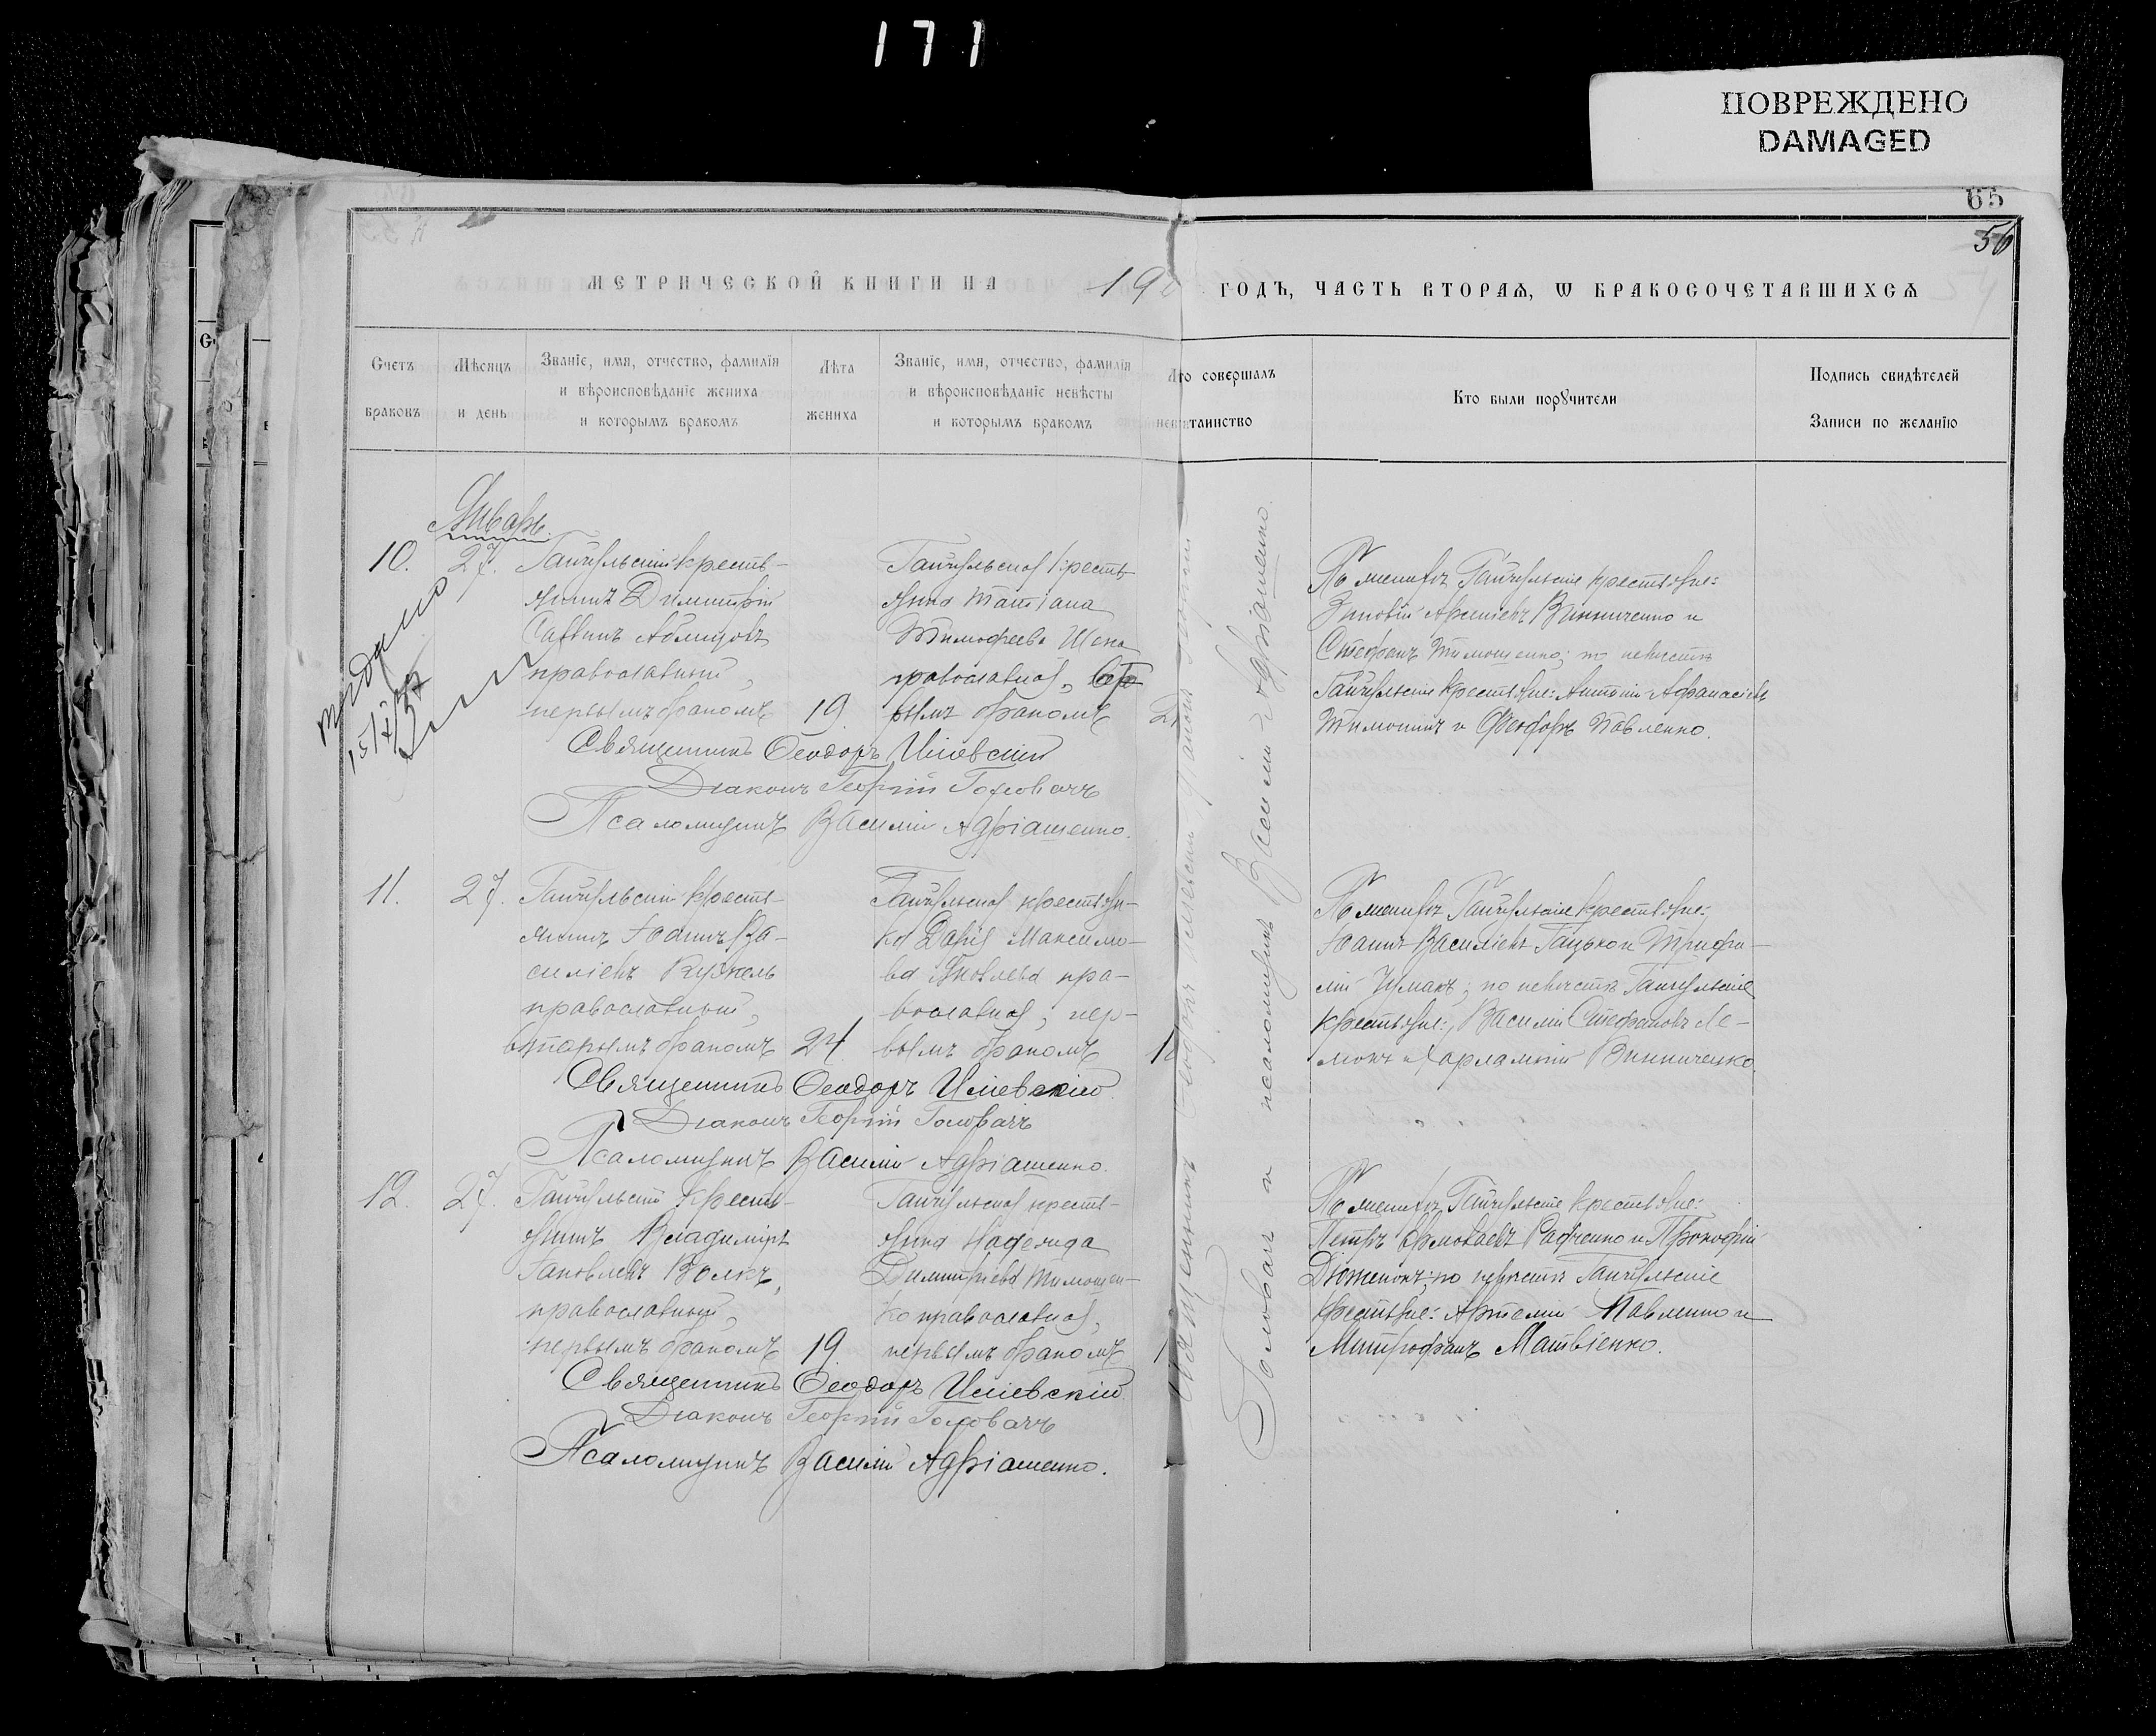 171
ПОВРЕЖДЕНО
DAMAGED
65
56
МЕТРИЧЕСКОЙ КНИГИ НА 19
ГОДЪ, ЧАСТЬ ВТОРАЯ, Ѡ БРАКОСОЧЕТАВШИХСЯ
Счетъ
браковъ
Мѣсяцъ
и день
Званіе, имя, отчество, фамилія
и вѣроисповѣданіе жениха
и которымъ бракомъ
Лѣта
жениха
Званіе, имя, отчество, фамилія
и вѣроисповѣданіе невѣсты
и которымъ бракомъ
совершалъ
таинство
Кто были порꙋчители
Подпись свидѣтелей
Записи по желанію
Январь.
10.
27.
Гайчульскій кресть-
янинъ Димитрій
Саввинъ
православный,
первымъ бракомъ
19.
Гайчульская кресть-
янка Татіана
Тимофеева
православная,
вымъ бракомъ
По женихѣ Гайчульскіе крестьяне:
Зиновій Арсеніевъ Винниченко и
Стефанъ Тимошенко; по невѣстѣ
Гайчульскіе крестьяне: Антоній Афанасіевъ
Тимошинъ и Феодоръ Павленко.
Священникъ Феодоръ Иліевскій
Діаконъ Георгій Головачъ
Псаломщикъ Василій Адріашенко.
11.
27.
Гайчульскій кресть-
янинъ Іоаннъ Ва-
силіевъ Кужель
православный,
вторымъ бракомъ
24.
Гайчульская крестьян-
ка Дарія Максимо-
ва Яковлева пра-
вославная, пер-
вымъ бракомъ
По женихѣ Гайчульскіе крестьяне:
Іоаннъ Василіевъ Гацько и Трифи-
лій Чумакъ; по невѣстѣ Гайчульскіе
крестьяне: Василій Стефановъ Ле-
мокъ и Харлампій Винниченко.
Священникъ Феодоръ Иліевскій
Діаконъ Георгій Головачъ
Псаломщикъ Василій Адріашенко.
12.
27.
Гайчульскій кресть-
янинъ Владиміръ
Іаковлевъ Волкъ,
православный,
первымъ бракомъ
19.
Гайчульская кресть-
янка Надежда
Димитріева Тимошен-
ко православная,
первымъ бракомъ
По женихѣ Гайчульскіе крестьяне:
Петръ Ермолаевъ Радченко и Прокофій
Дюженокъ; по невѣстѣ Гайчульскіе
крестьяне: Артемій Павленко и
Митрофанъ Матвіенко.
Священникъ Феодоръ Иліевскій
Діаконъ Георгій Головачъ
Псаломщикъ Василій Адріашенко.
Головачъ и псаломщикъ Василій Адріашенко.